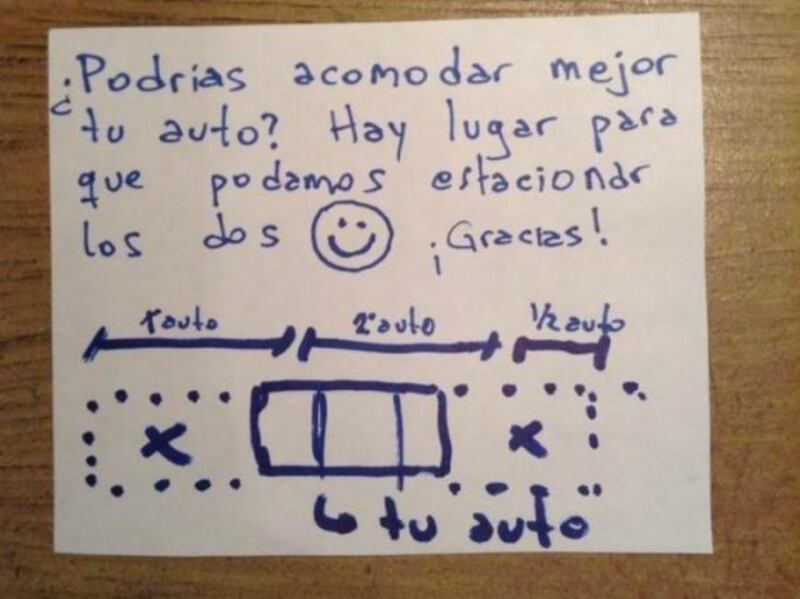 ¿Podrías acomodar mejor
tu auto? Hay lugar para
que podamos estacionar
los dos ¡Gracias!
1°auto 2°auto 1/2 auto
x x
tu auto